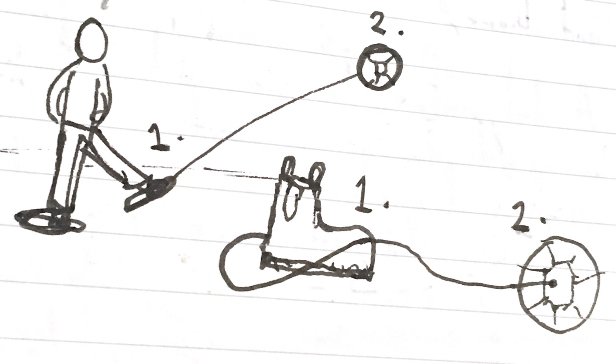 2.
1.
1.
2.